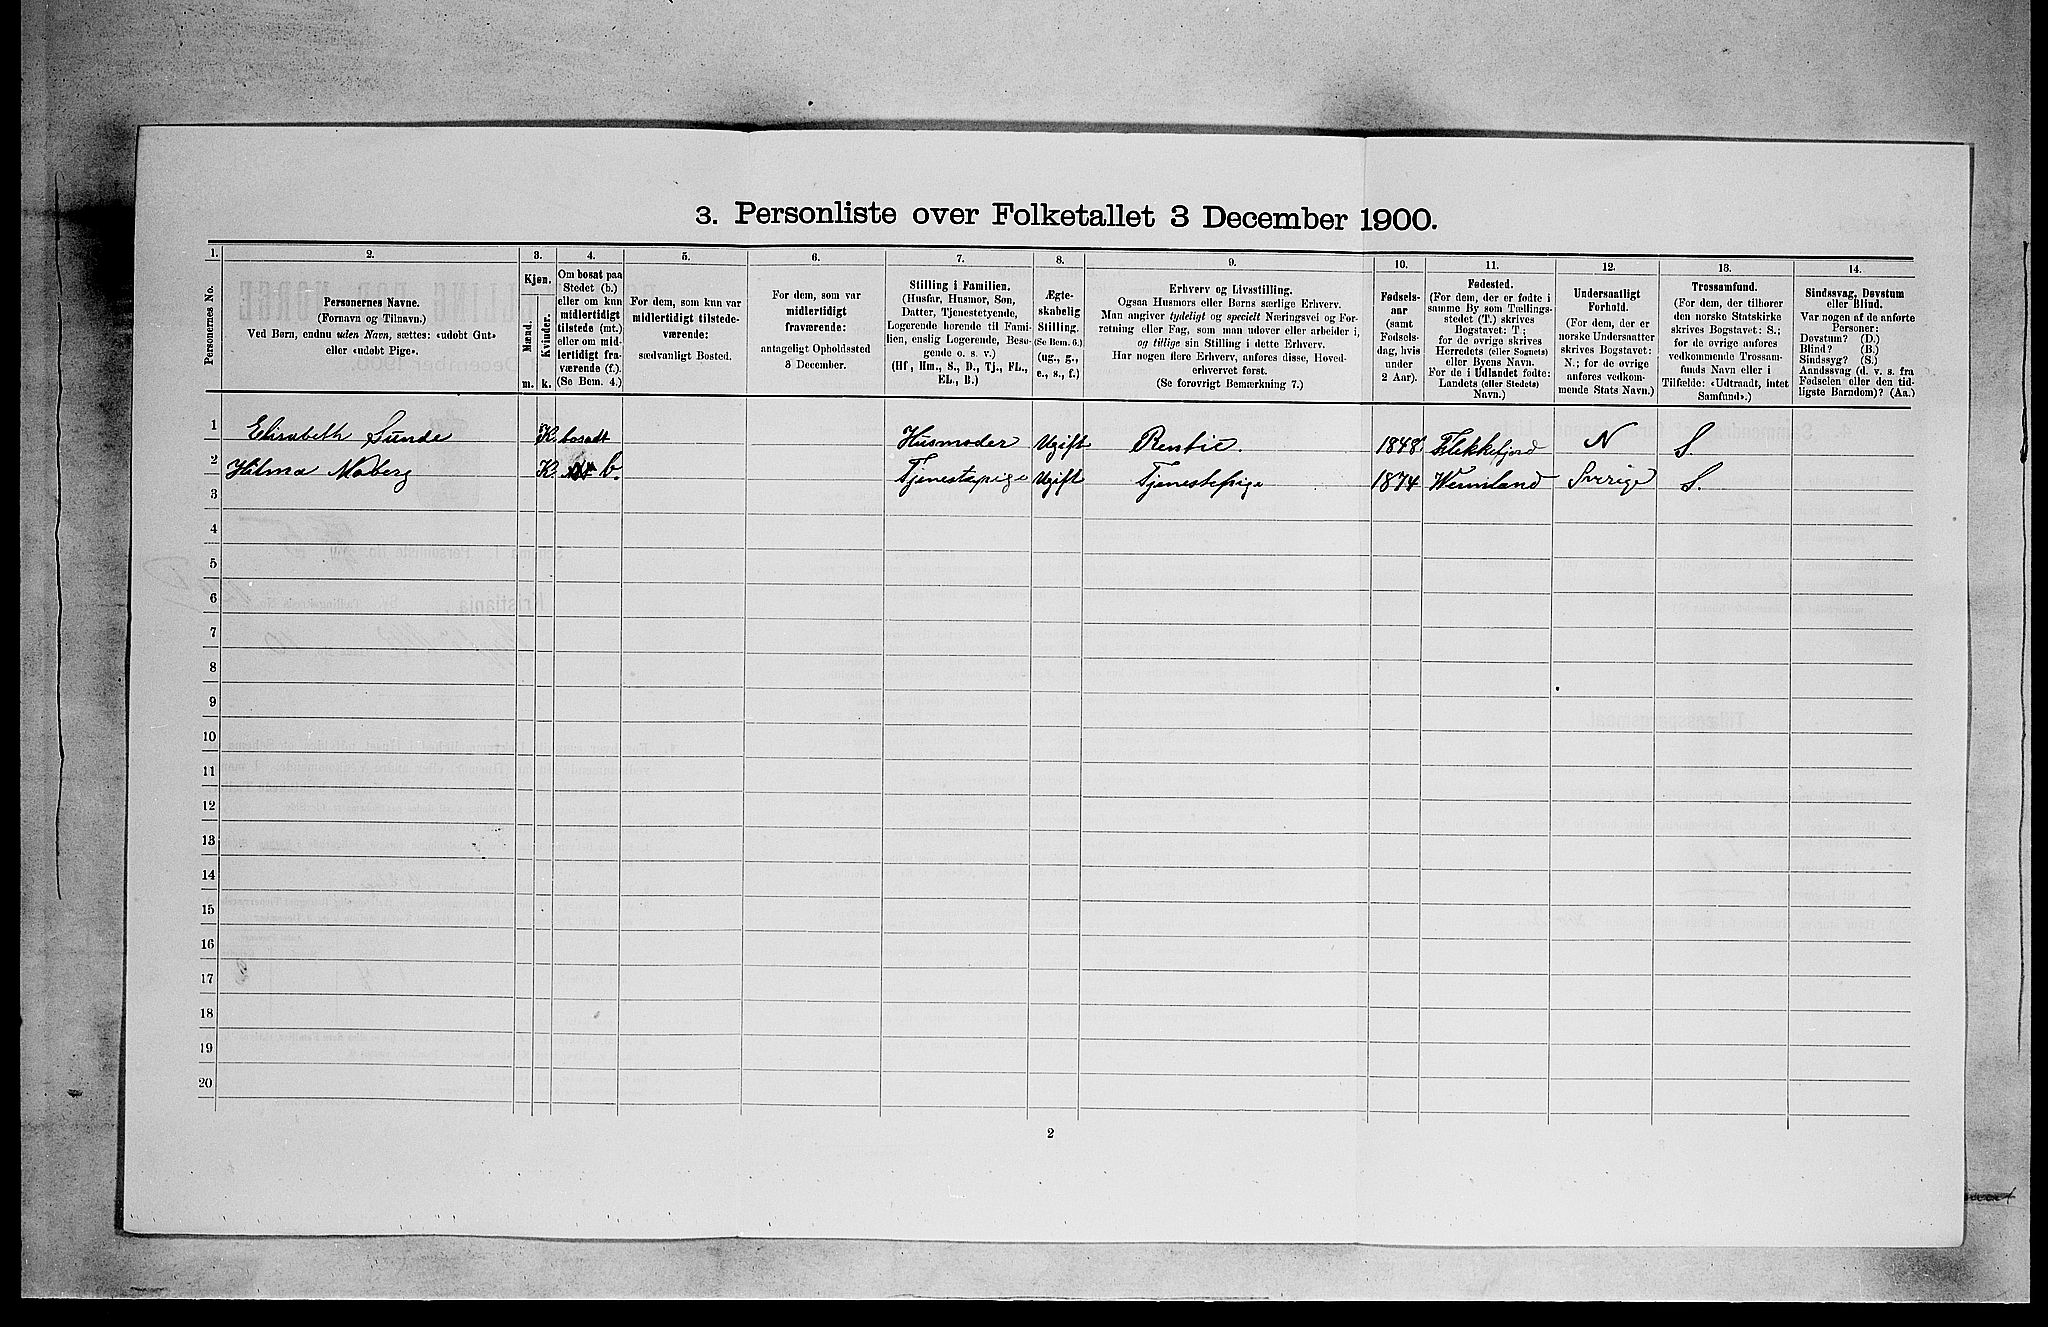 3. Personliste over Folketallet 3 December 1900.
1. 2. 3. 4. 5. 6. 7. 8. 9. 10. 11. 12. 13. 14.
Personernes No.
Personernes Navne.
(Fornavn og Tilnavn.)
Ved Børn, endnu uden Navn, sættes: «udøbt Gut»
eller «udøbt Pige».
Kjøn.
Mænd.
Kvinder.
m. k.
Om bosat paa
Stedet (b.)
eller om kun
midlertidigt
tilstede (mt.)
eller om mid-
lertidigt fra-
værende (f.).
(Se Bem. 4.)
For dem, som kun var
midlertidigt tilstede-
værende:
sædvanligt Bosted.
For dem, som var
midlertidigt
fraværende:
antageligt Opholdssted
3 December.
Stilling i Familien.
(Husfar, Husmor, Søn,
Datter, Tjenestetyende,
Logerende hørende til Fami-
lien, enslig Logerende, Besø-
gende o. s. v.)
(Hf, Hm., S., D., Tj., FL.,
EL., B.)
Ægte-
skabelig
Stilling.
(Se Bem. 6.)
(ug., g.,
e., s., f.)
Erhverv og Livsstilling.
Ogsaa Husmors eller Børns særlige Erhverv.
Man angiver tydeligt og specielt Næringsvei og For-
retning eller Fag, som man udøver eller arbeider i,
og tillige sin Stilling i dette Erhverv.
Har nogen flere Erhverv, anføres disse, Hoved-
erhvervet først.
(Se forøvrigt Bemærkning 7.)
Fødsels-
aar
(samt
Fødsels-
dag, hvis
under
2 Aar).
Fødested.
(For dem, der er fødte i
samme By som Tællings-
stedet (T.) skrives
Bogstavet: T;
for de øvrige skrives
Herredets (eller Sognets)
eller Byens Navn.
For de i Udlandet fødte:
Landets (eller Stedets)
Navn.)
Undersaatligt
Forhold.
(For dem, der er
norske Undersaatter
skrives Bogstavet:
N.; for de øvrige
anføres vedkom-
mende Stats Navn.)
Trossamfund.
(For dem, der tilhører
den norske Statskirke
skrives Bogstavet: S.;
for de øvrige anføres
vedkommende Trossam-
funds Navn eller i
Tilfælde: «Udtraadt, intet
Samfund».)
Sindssvag, Døvstum
eller Blind.
Var nogen af de anførte
Personer:
Døvstum? (D.)
Blind? (B.)
Sindssyg? (S.)
Aandssvag (d. v. s. fra
Fødselen eller den tid-
ligste Barndom)? (Aa.)
1 Elisabeth Sunde K. bosatt Husmoder Ugift Rentie. 1848 Flekkefjord N S.
2 Hilma Moberg K. b. Tjenestepige Ugift Tjenestepige 1874 Wermland Sverige S.
3
4
5
6
7
8
9
10
11
12
13
14
15
16
17
18
19
20
2